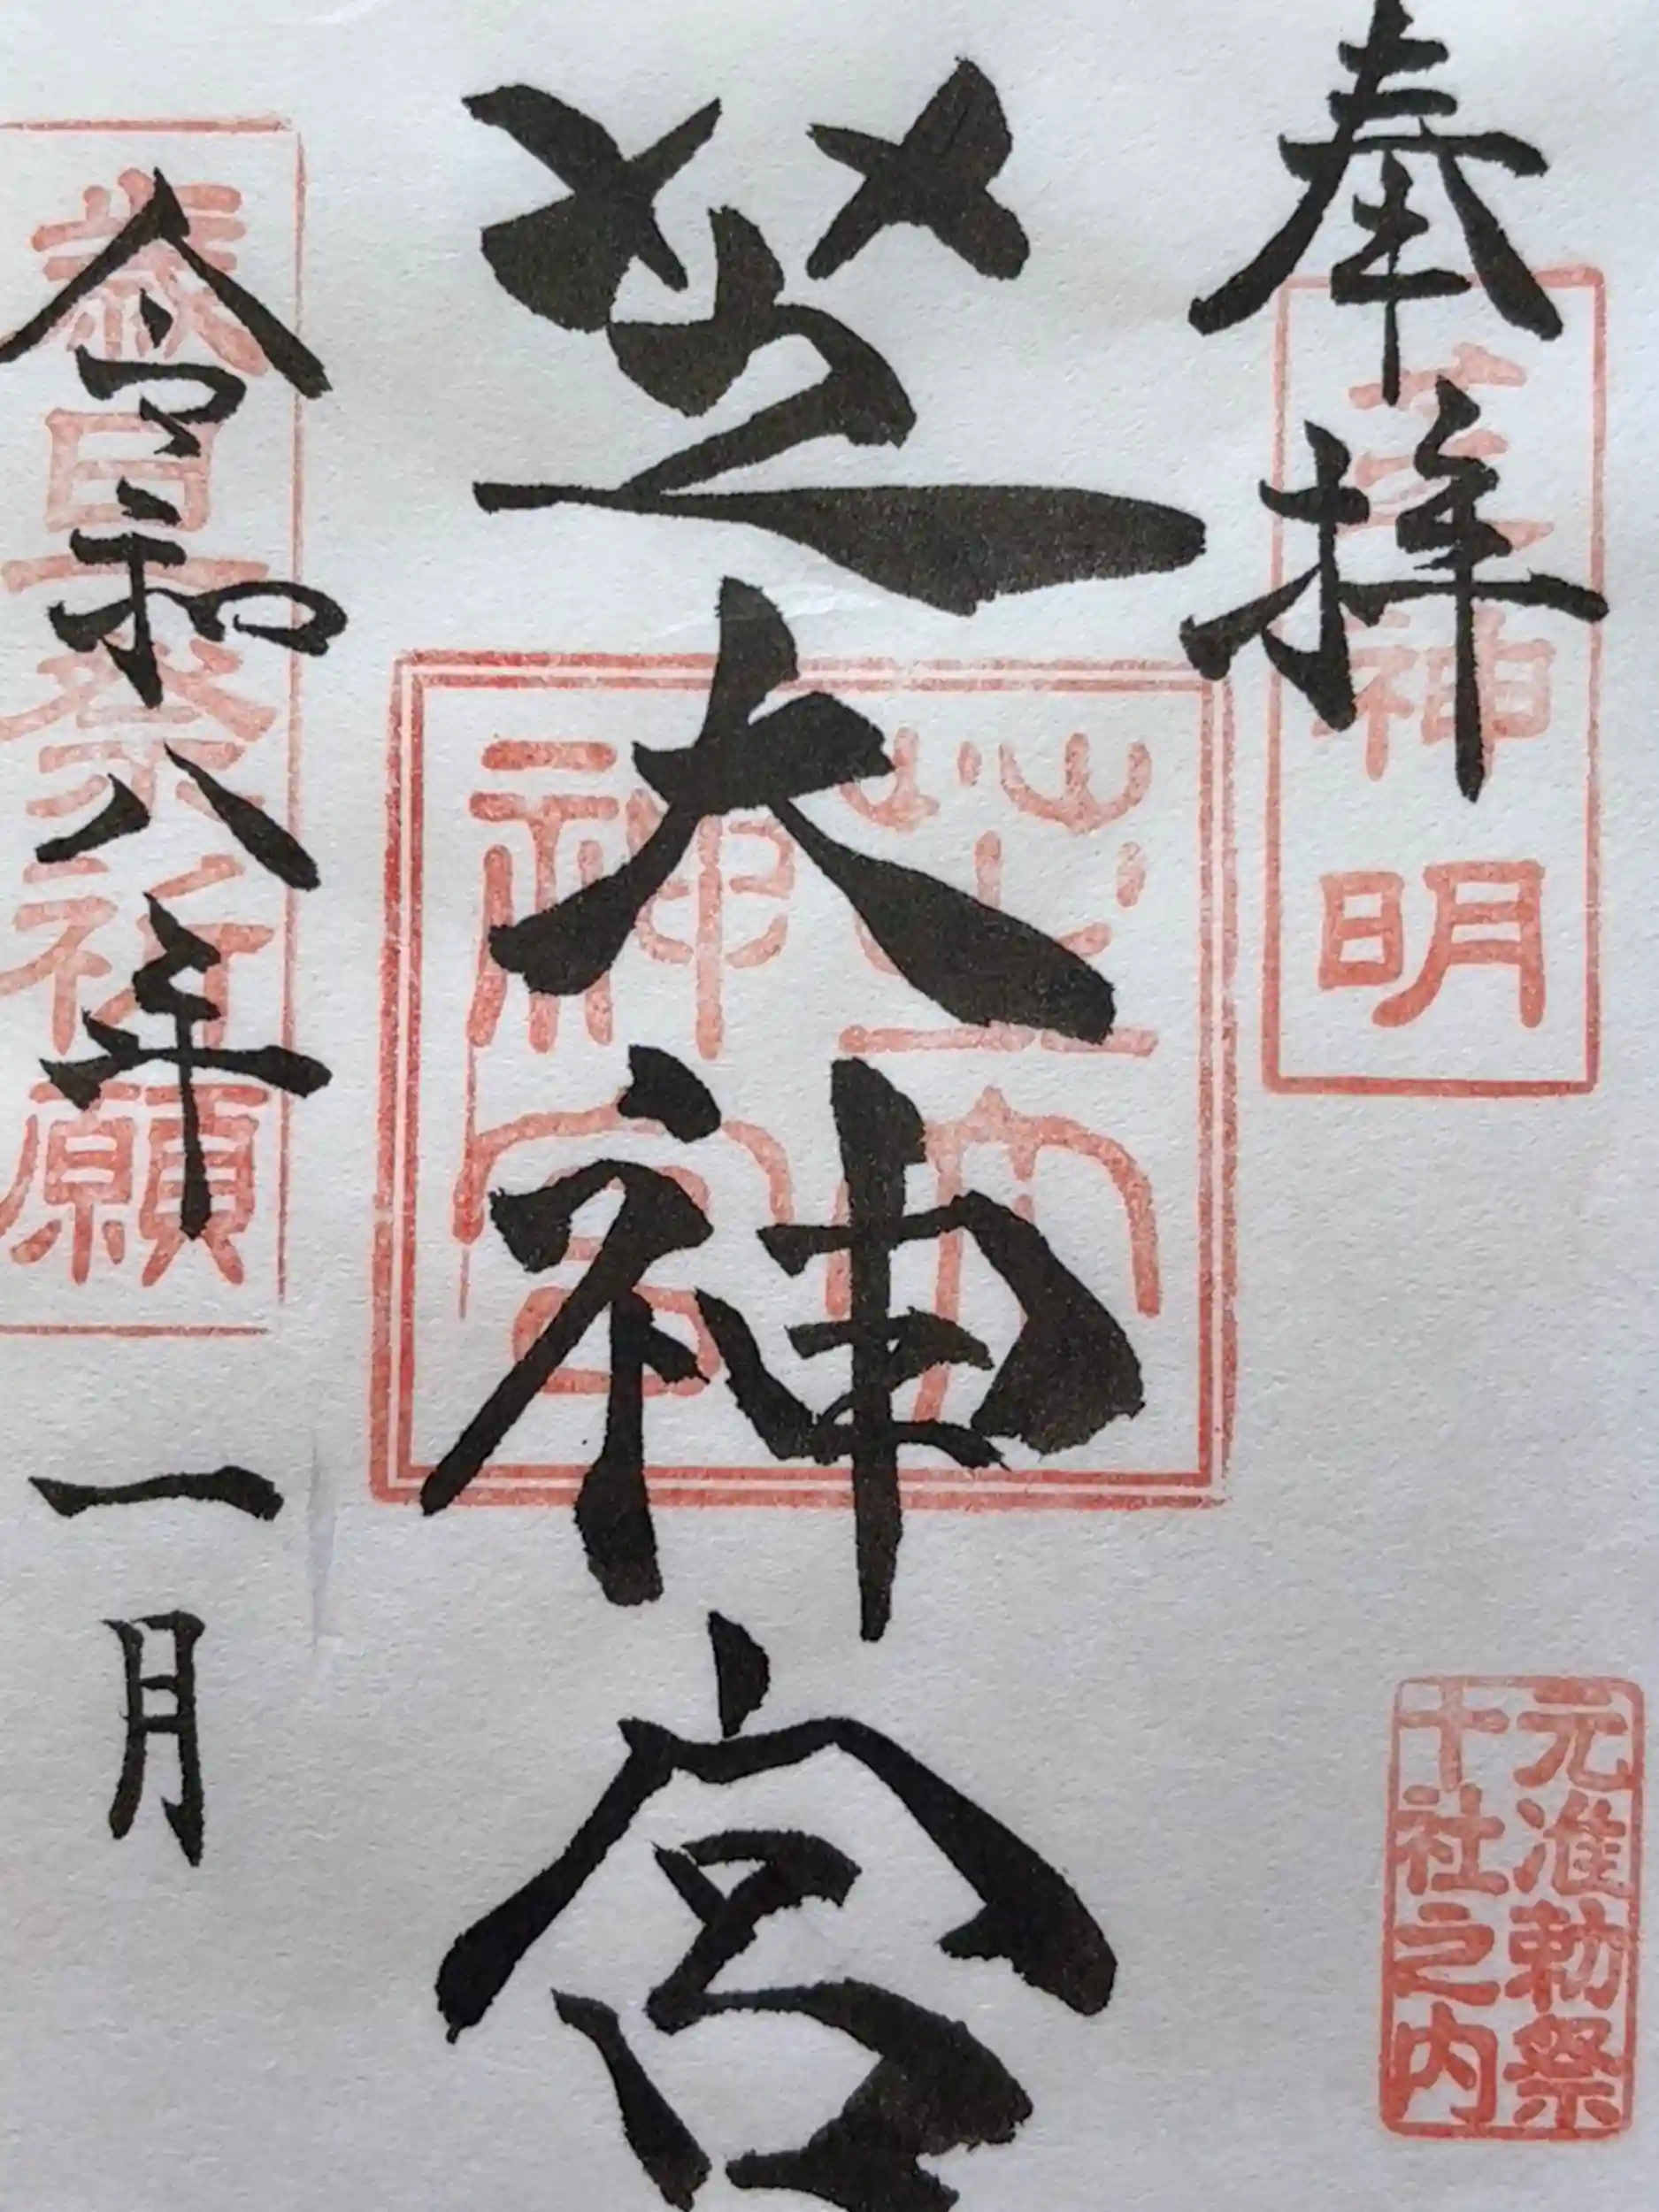 奉拝
芝神明
元准勅祭
十社之内
芝大神宮
芝大
神宮
令和八年 一月
歳旦祭祈願